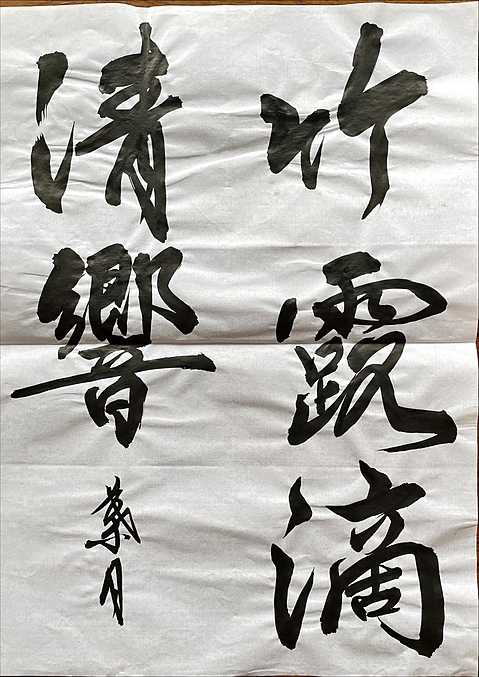 竹露滴
清響
葉月